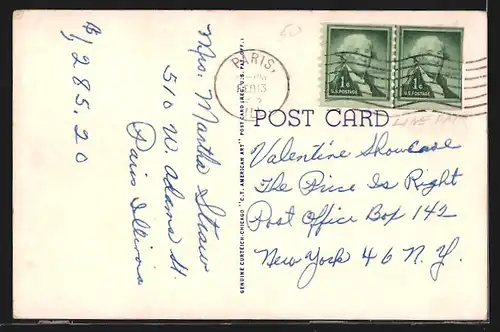 $1285.20
Mrs. Martha Straw
510 W. Adams St.
Paris Illinois
GENUINE CURTEICH-CHICAGO "C.T. AMERICAN ART" POST CARD (REG. U.S. PAT. OFF.)
PARIS,
1¢
U.S. POSTAGE
1¢
U.S. POSTAGE
LINE PAIR
POST CARD
Valentine Showcase
The Price Is Right
Post Office Box 142
New York 46 N.Y.